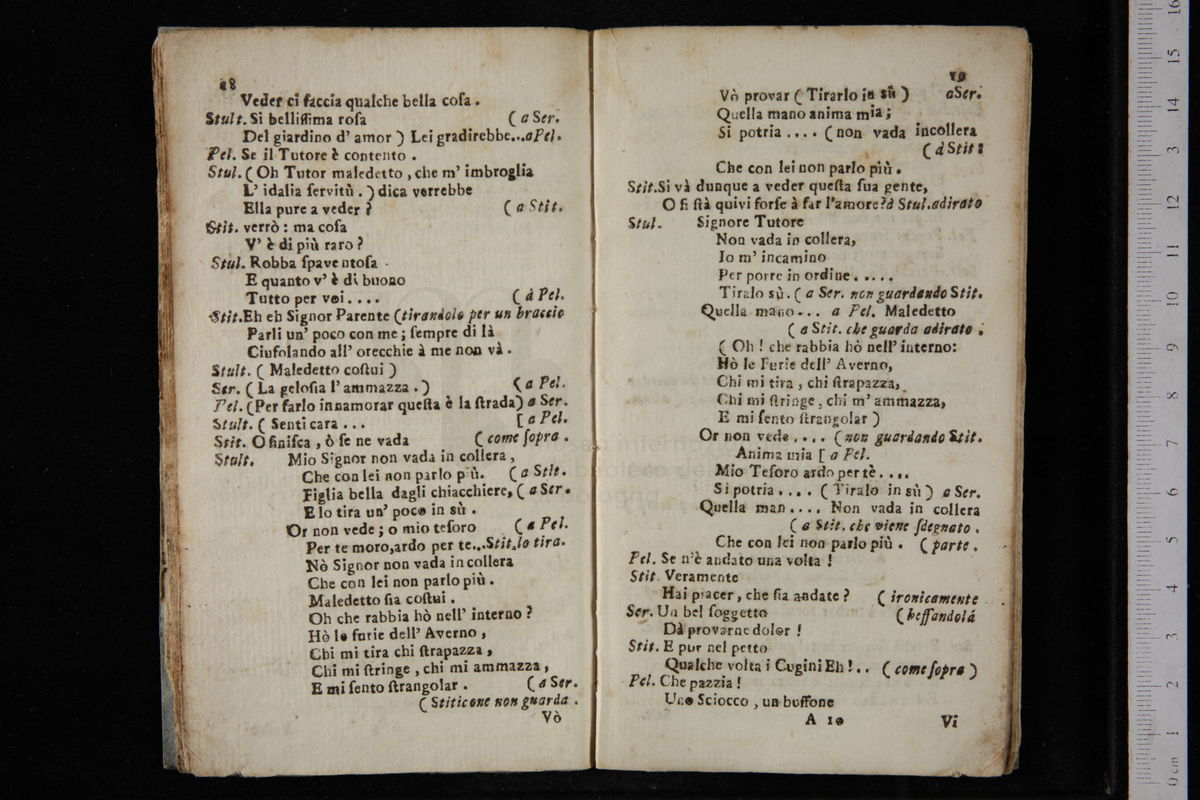 18
Veder ci faccia qualche bella coſa .
Stult. Si belliſſima roſa ( a Ser.
Del giardino d' amor ) Lei gradirebbe...a Pel.
Pel. Se il Tutore è contento .
Stul. ( Oh Tutor maledetto , che m' imbroglia
L' idalia ſervitù . ) dica verrebbe
Ella pure a veder ? ( a Stit.
Stit. verrò : ma coſa
V' è di più raro ?
Stul. Robba ſpaventoſa
E quanto v' è di buono
Tutto per voi . . . . ( à Pel.
Stit. Eh eh Signor Parente ( tirandolo per un braccio
Parli un' poco con me ; ſempre di là
Ciufolando all' orecchie à me non và .
Stult. ( Maledetto coſtui )
Ser. ( La geloſia l' ammazza . ) ( a Pel.
Pel. (Per farlo innamorar queſta è la ſtrada) a Ser.
Stult. ( Senti cara . . . [ a Pel.
Stit. O finiſca , ò ſe ne vada ( come ſopra .
Stult. Mio Signor non vada in collera ,
Che con lei non parlo più. ( a Stit.
Figlia bella dagli chiacchiere, ( a Ser.
E lo tira un' poco in sù .
Or non vede ; o mio teſoro ( a Pel.
Per te moro,ardo per te...Stit.lo tira.
Nò Signor non vada in collera
Che con lei non parlo più .
Maledetto ſia coſtui .
Oh che rabbia hò nell' interno ?
Hò le furie dell' Averno ,
Chi mi tira chi ſtrapazza ,
Chi mi ſtringe , chi mi ammazza ,
E mi ſento ſtrangolar . ( a Ser.
( Stiticone non guarda .
Vò
19
Vò provar ( Tirarlo in sù ) a Ser.
Quella mano anima mia ;
Si potria . . . . ( non vada incollera
( à Stit:
Che con lei non parlo più .
Stit. Si và dunque a veder queſta ſua gente,
O ſi ſtà quivi forſe à far l'amore?à Stul.adirato
Stul. Signore Tutore
Non vada in collera,
Io m' incamino
Per porre in ordine . . . . .
Tiralo sù. ( a Ser. non guardando Stit.
Quella mano . . . a Pel. Maledetto
( a Stit. che guarda adirato .
( Oh ! che rabbia hò nell' interno:
Hò le Furie dell' Averno,
Chi mi tira , chi ſtrapazza,
Chi mi ſtringe , chi m' ammazza,
E mi ſento ſtrangolar )
Or non vede . . . . ( non guardando Stit.
Anima mia [ a Pel.
Mio Teſoro ardo per tè . . . .
Si potria . . . . ( Tiralo in sù ) a Ser.
Quella man . . . . Non vada in collera
( a Stit. che viene ſdegnato .
Che con lei non parlo più . ( parte .
Pel. Se n'è andato una volta !
Stit. Veramente
Hai piacer , che ſia andate ? ( ironicamente
Ser. Un bel ſoggetto ( beffandolá
Dà provarne dolor !
Stit. E pur nel petto
Qualche volta i Cugini Eh ! . . ( come ſopra )
Pel. Che pazzia !
Uno Sciocco , un buffone
A 10 Vi